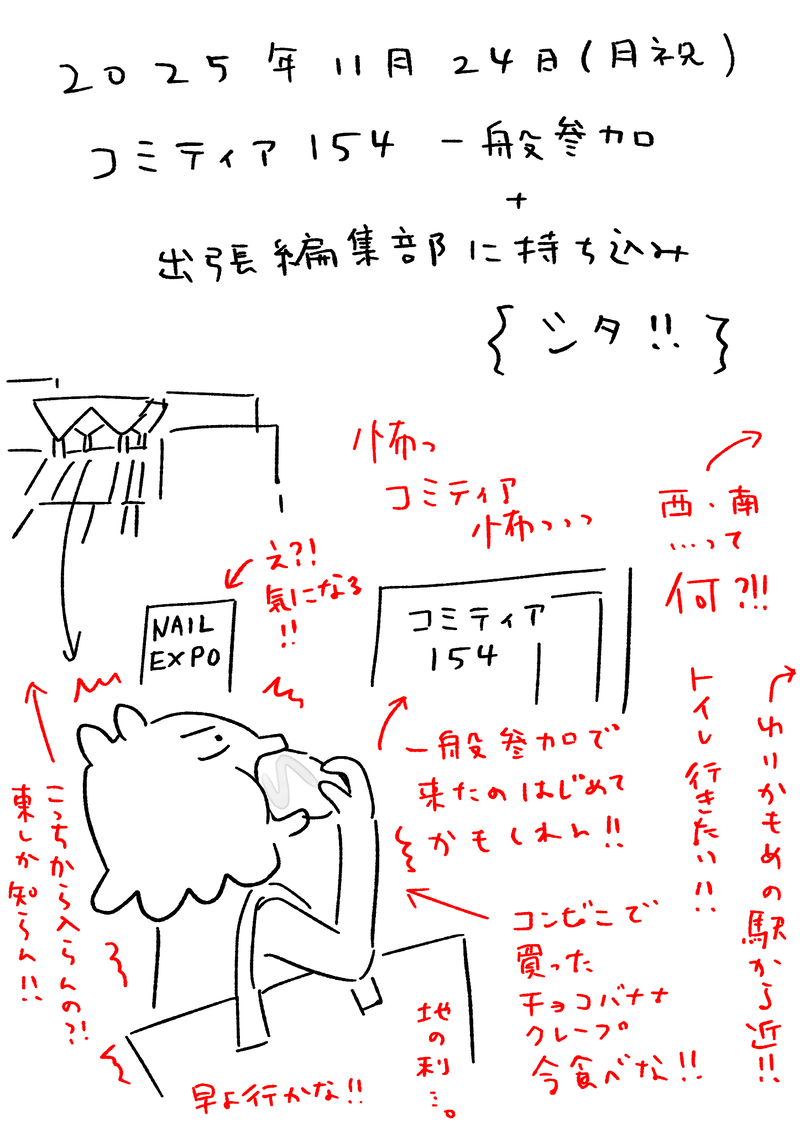 2025年11月24日(月祝)
コミティア154 一般参加
+
出張編集部に持ち込み
{シタ!!}
怖っ
コミティア
怖っっっ
西・南
…って
何?!!
え?!
気になる
!!
NAIL
EXPO
コミティア
154
一般参加で
来たのはじめて
かもしれん!!
トイレ行きたい!!
ゆりかもめの駅から近!!
こっちから入らんの?!
東しか知らん!!
コンビニで
買った
チョコバナナ
クレープ
今食べな!!
地の利…。
早よ行かな!!